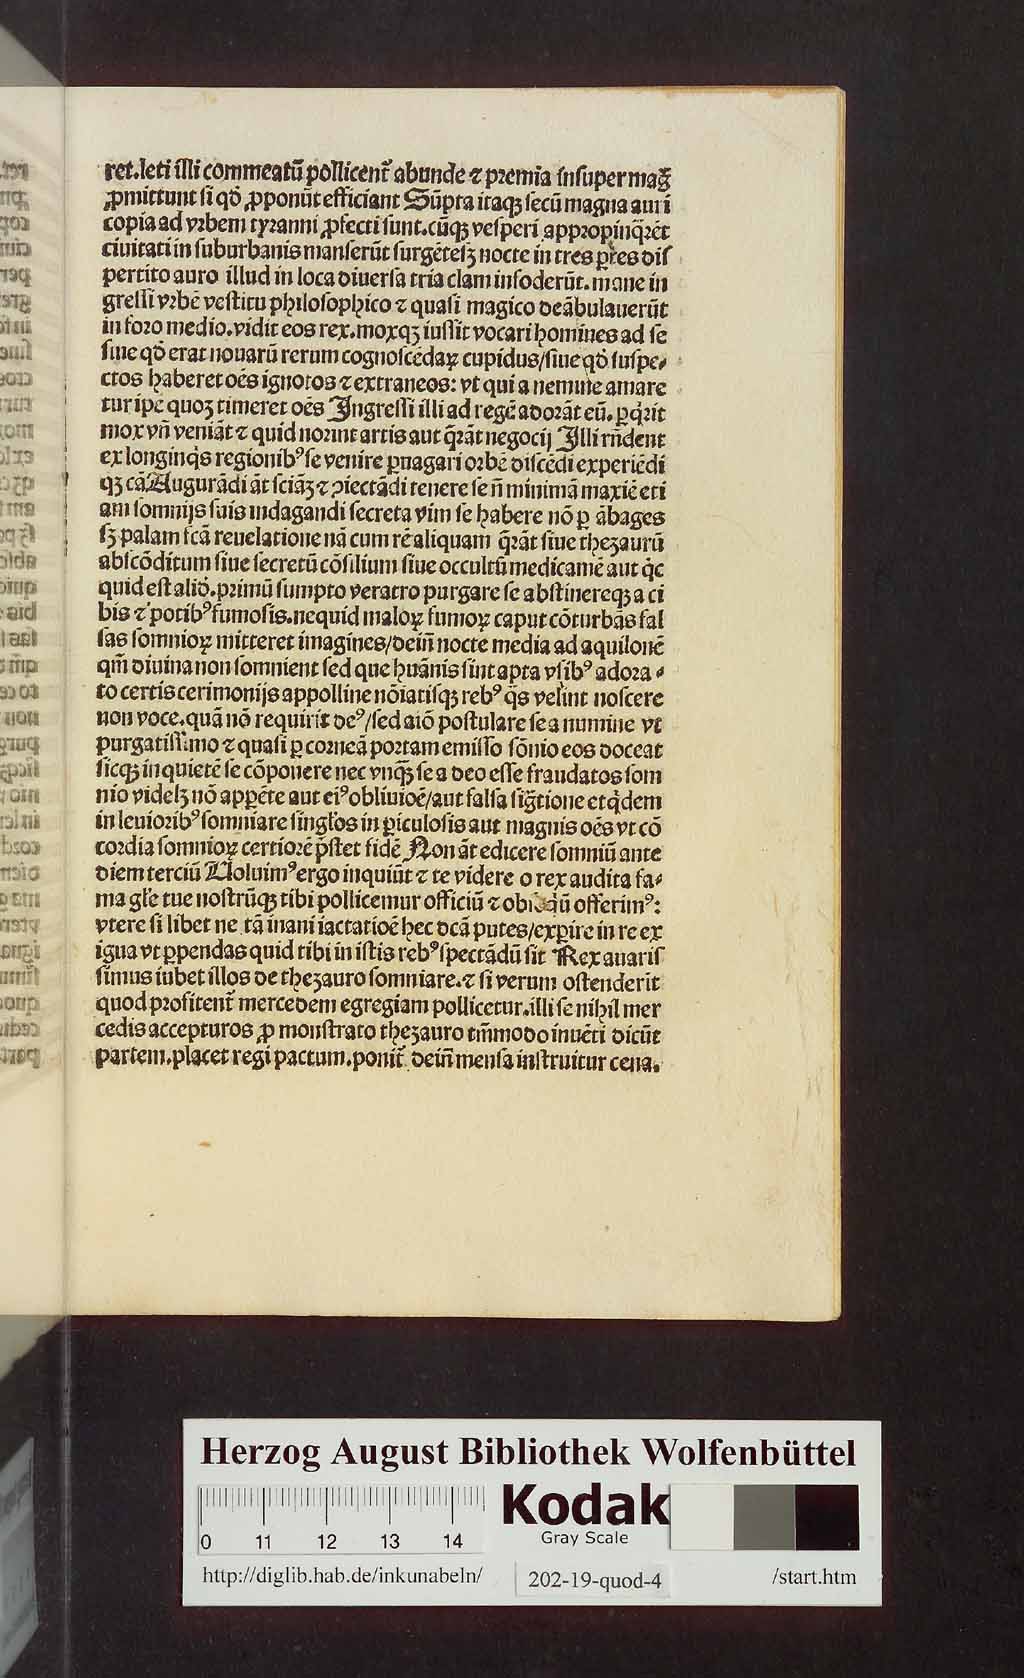 ret.leti illi commeatū pollicent᷑ abunde ⁊ premia insuper mag̃
ꝓmittunt si qđ ꝓponūt efficiant Sūpta itaqꝫ secū magna auri
copia ad vrbem tyranni ꝓfecti sunt.cūqꝫ vesperi appropinq̄rēt
ciuitati in suburbanis manserūt surgētesqꝫ nocte in tres ꝑtes dis
pertito auro illud in loca diuersa tria clam insoderūt. mane in
gressi vrbē vestitu philosophico ⁊ quasi magico deābulauerūt
in foro medio.vidit eos rex.moxqꝫ iussit vocari homines ad se
siue qđ erat nouarū rerum cognoscēdaꝝ cupidus/siue qđ suspe⸗
ctos haberet oēs ignotos ⁊ extraneos: vt qui a nemine amare
tur ipe quoqꝫ timeret oēs Ingressi illi ad regē adorāt eū. ꝑq̄rit
mox vñ veniāt ⁊ quid norint artis aut q̄rāt negocij Illi rñdent
ex longinq̄s regionibꝰ se venire ꝑuagari orbē discēdi experiēdi
qꝫ cā Augurādi āt sciāꝫ ⁊ ꝯiectādi tenere se ñ minimā maxiē eti
am somnijs suis indagandi secreta vim se habere nō ꝑ ābages
sꝫ palam fcā reuelatione nā cum rē aliquam q̄rāt siue thezaurū
abscōditum siue secretū cōsilium siue occultū medicamē aut q̄c
quid est aliđ.primū sumpto veratro purgare se abstinereqꝫ a ci
bis ⁊ potibꝰ fumosis.nequid maloꝝ fumoꝝ caput cōturbās fal
sas somnioꝝ mitteret imagines/deiñ nocte media ad aquilonē
qm̄ diuina non somnient sed que huānis sint apta vsibꝰ adora⸗
to certis cerimonijs appolline nōiatisqꝫ rebꝰ q̄s velint noscere
non voce.quā nō requirit deꝰ/sed aiō postulare se a numine vt
purgatissimo ⁊ quasi ꝑ corneā portam emisso sōnio eos doceat
sicqꝫ in quietē se cōponere nec vnq̄ꝫ se a deo esse fraudatos som
nio videlꝫ nō appēte aut eiꝰ obliuioē/aut falsa sig̃tione et q̄dem
in leuioribꝰ somniare singl̄os in ꝑiculosis aut magnis oēs vt cō
cordia somnioꝝ certiorē p̄stet fidē Non āt edicere somniū ante
diem terciū Uoluimꝰ ergo inquiūt ⁊ te videre o rex audita fa⸗
ma gl̄e tue nostrūqꝫ tibi pollicemur officiū ⁊ offerimꝰ:
vtere si libet ne tā inani iactatioē hec dcā putes/exꝑire in re ex
igua vt ꝑpendas quid tibi in istis rebꝰ spectādū sit Rex auaris
simus iubet illos de thezauro somniare.⁊ si verum ostenderit
quod profitent᷑ mercedem egregiam pollicetur.illi se nihil mer
cedis accepturos ꝓ monstrato thezauro tm̄modo inuēti dicūt
partem.placet regi pactum.ponit᷑ deiñ mensa instruitur cena.
Herzog August Bibliothek Wolfenbüttel
Kodak
Gray Scale
0 11 12 13 14
http://diglib.hab.de/inkunabeln/ 202-19-quod-4 /start.htm